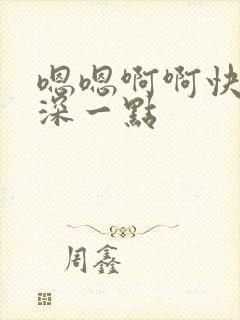 嗯嗯啊啊快
深一點
周鑫